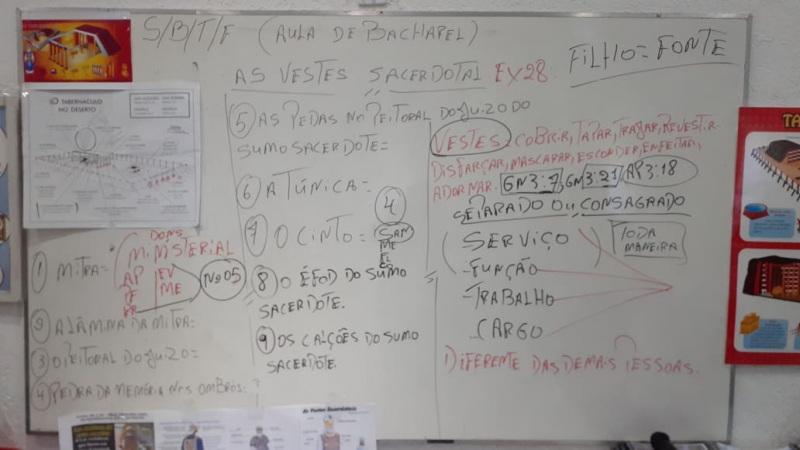 S/B/T/F (AULA DE BACHAREL)
FILHO = FONTE
AS VESTES SACERDOTAL EX28.
TABERNÁCULO
NO DESERTO
① MITRA=
DONS
MINISTERIAL
AP
PR
EV
ME
Nº05
② A LÂMINA DA MITRA:
③ O PEITORAL DO JUIZO=
④ PEDRA DA MEMÓRIA NOS OMBROS: ?
⑤ AS PEDAS NO PEITORAL DO JUIZO DO
SUMO SACERDOTE=
⑥ A TÚNICA=
④
⑦ O CINTO=
⑧ O ÉFOD DO SUMO
SACERDOTE.
⑨ OS CALÇÕES DO SUMO
SACERDOTE.
VESTES: COBRIR, TAPAR, TRAJAR, REVESTIR
DISFARÇAR, MASCARAR, ESCONDER, ENFEITAR,
ADORNAR. GN3:7, GN 3:21, AP3:18
SEPARADO OU CONSAGRADO
SERVIÇO
TODA
MANEIRA
-FUNÇÃO
-TRABALHO
CARGO
DIFERENTE DAS DEMAIS PESSOAS.
TA